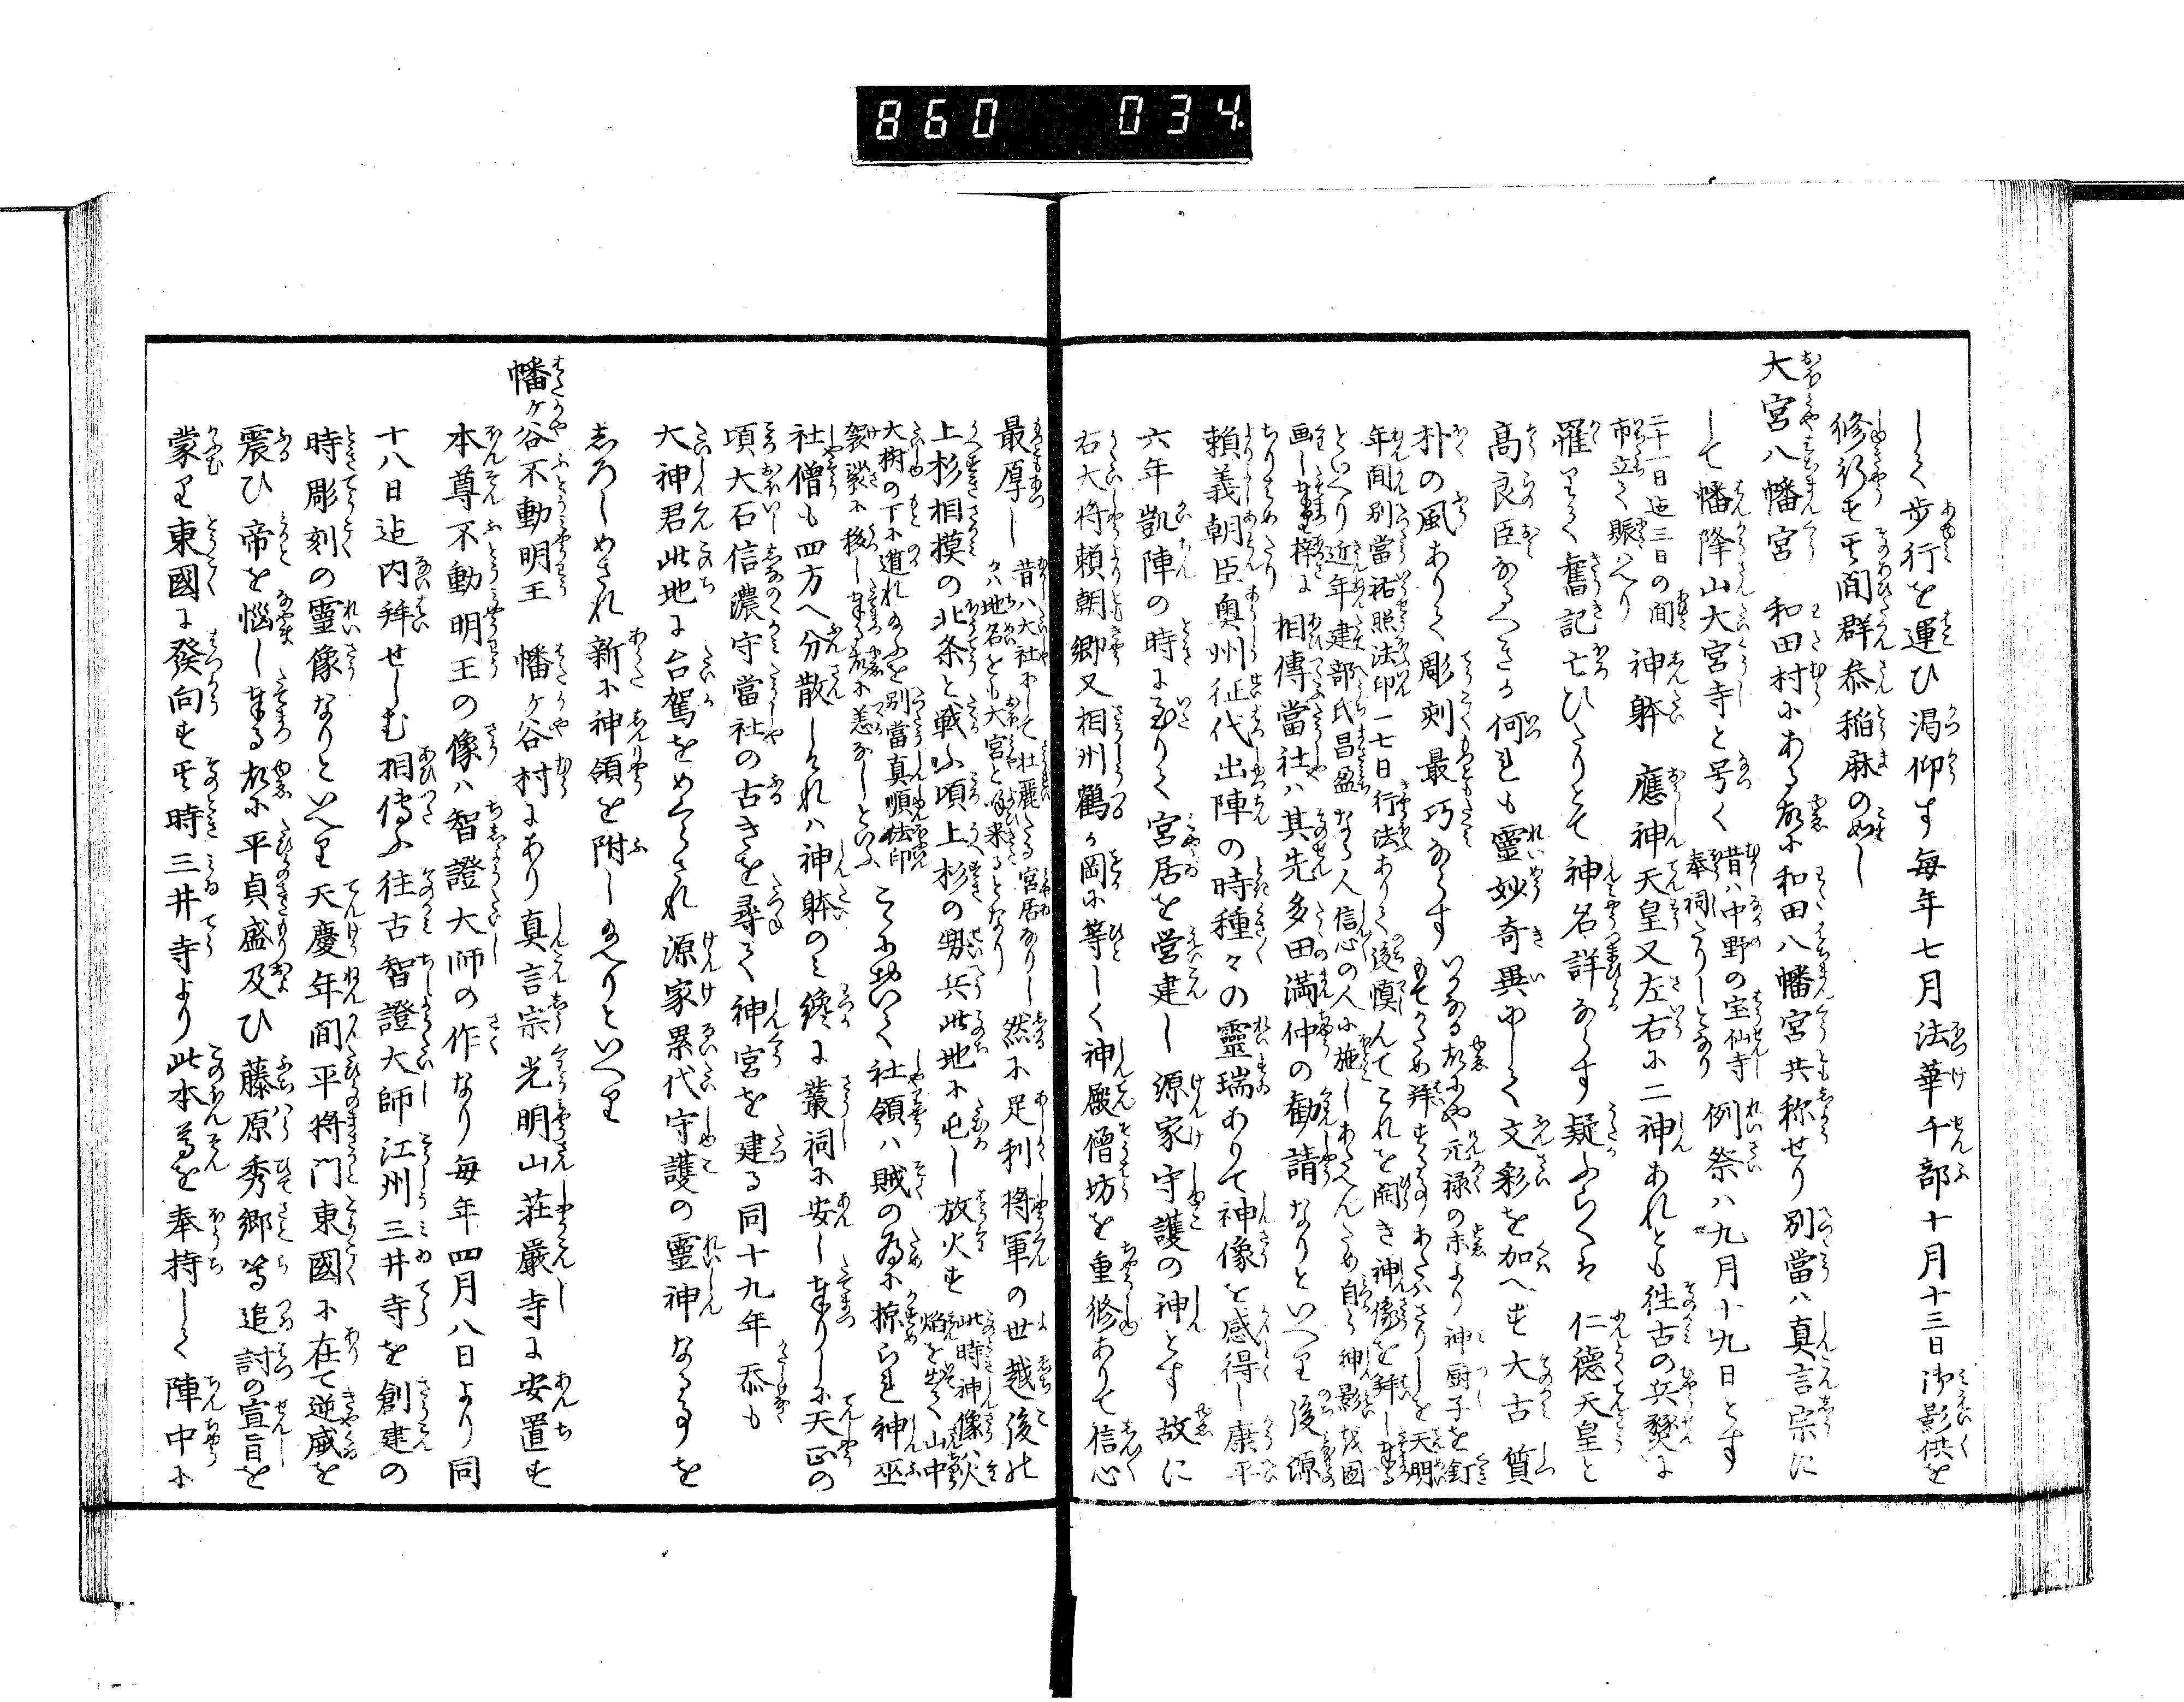 860 034
して歩行を運ひ渇仰す毎年七月法華千部十月十三日御影供を
修行す其間群参稲麻の如し
大宮八幡宮 和田村にある故に和田八幡宮共称せり別當ハ真言宗に
して幡降山大宮寺と号く 昔ハ中野の宝仙寺
奉祠たりしとなり 例祭ハ九月十九日とす
二十一日迄三日の間
市立て賑へり 神躰 應神天皇又左右に二神あれとも往古の兵燹に
羅りて舊記亡ひたりとて神名詳ならす疑ふらくは 仁德天皇と
高良臣なるへきか何れも靈妙奇異にして文彩を加へす大古質
朴の風ありて彫刻最巧ならす いかなる故にや元禄の末より神厨子を釘
もてかため拜することあたハさりしを天明
年間別當祐照法印一七日行法ありて後慎んてこれを開き神像を拜し奉る
といへり近年建部氏昌盈なる人信心の人に施しあたへんため自ら神影を図
画し奉り梓に
ちりはめたり 相傳當社ハ其先多田満仲の勧請なりといへり後源
頼義朝臣奥州征伐出陣の時種々の靈瑞ありて神像を感得し康平
六年凱陣の時に至りて宮居を営建し源家守護の神とす故に
右大将頼朝卿又相州鶴か岡に等しく神殿僧坊を重修ありて信心
最厚し 昔ハ大社にして壮麗たる宮居なりし
かハ地名をも大宮と唱へ来るとなり 然に足利将軍の世越後の
上杉相摸の北条と戦ふ頃上杉の男兵此地に屯し放火す 此時神像ハ火
焔を出て山中
大樹の下に遁れ給ふを別當真順法印
袈裟に移し奉る故に恙なしといふ こゝに於いて社領ハ賊の為に掠られ神巫
社僧も四方へ分散しけれハ神躰のミ纔に叢祠に安し奉りしに天正の
頃大石信濃守當社の古きを尋て神宮を建る同十九年忝も
大神君此地に台駕をめくらされ源家累代守護の靈神なる事を
しろしめされ新に神領を附し給へりといへり
幡ヶ谷不動明王 幡ヶ谷村にあり真言宗光明山荘嚴寺に安置す
本尊不動明王の像ハ智證大師の作なり毎年四月八日より同
十八日迄内拜せしむ相傳ふ往古智證大師江州三井寺を創建の
時彫刻の靈像なりといへり天慶年間平将門東國に在て逆威を
震ひ帝を惱し奉る故に平貞盛及ひ藤原秀郷等追討の宣旨を
蒙り東國に發向す其時三井寺より此本尊を奉持して陣中に